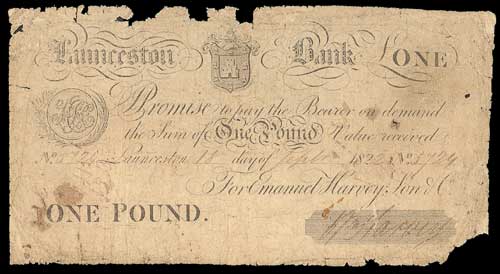 Launceston Bank £ONE
I Promise to pay the Bearer on demand
the Sum of One Pound Value received
No. 5724 Launceston 18 day of 1822 No. 5724
For Emanuel Harvey, Son & Co.
ONE POUND.